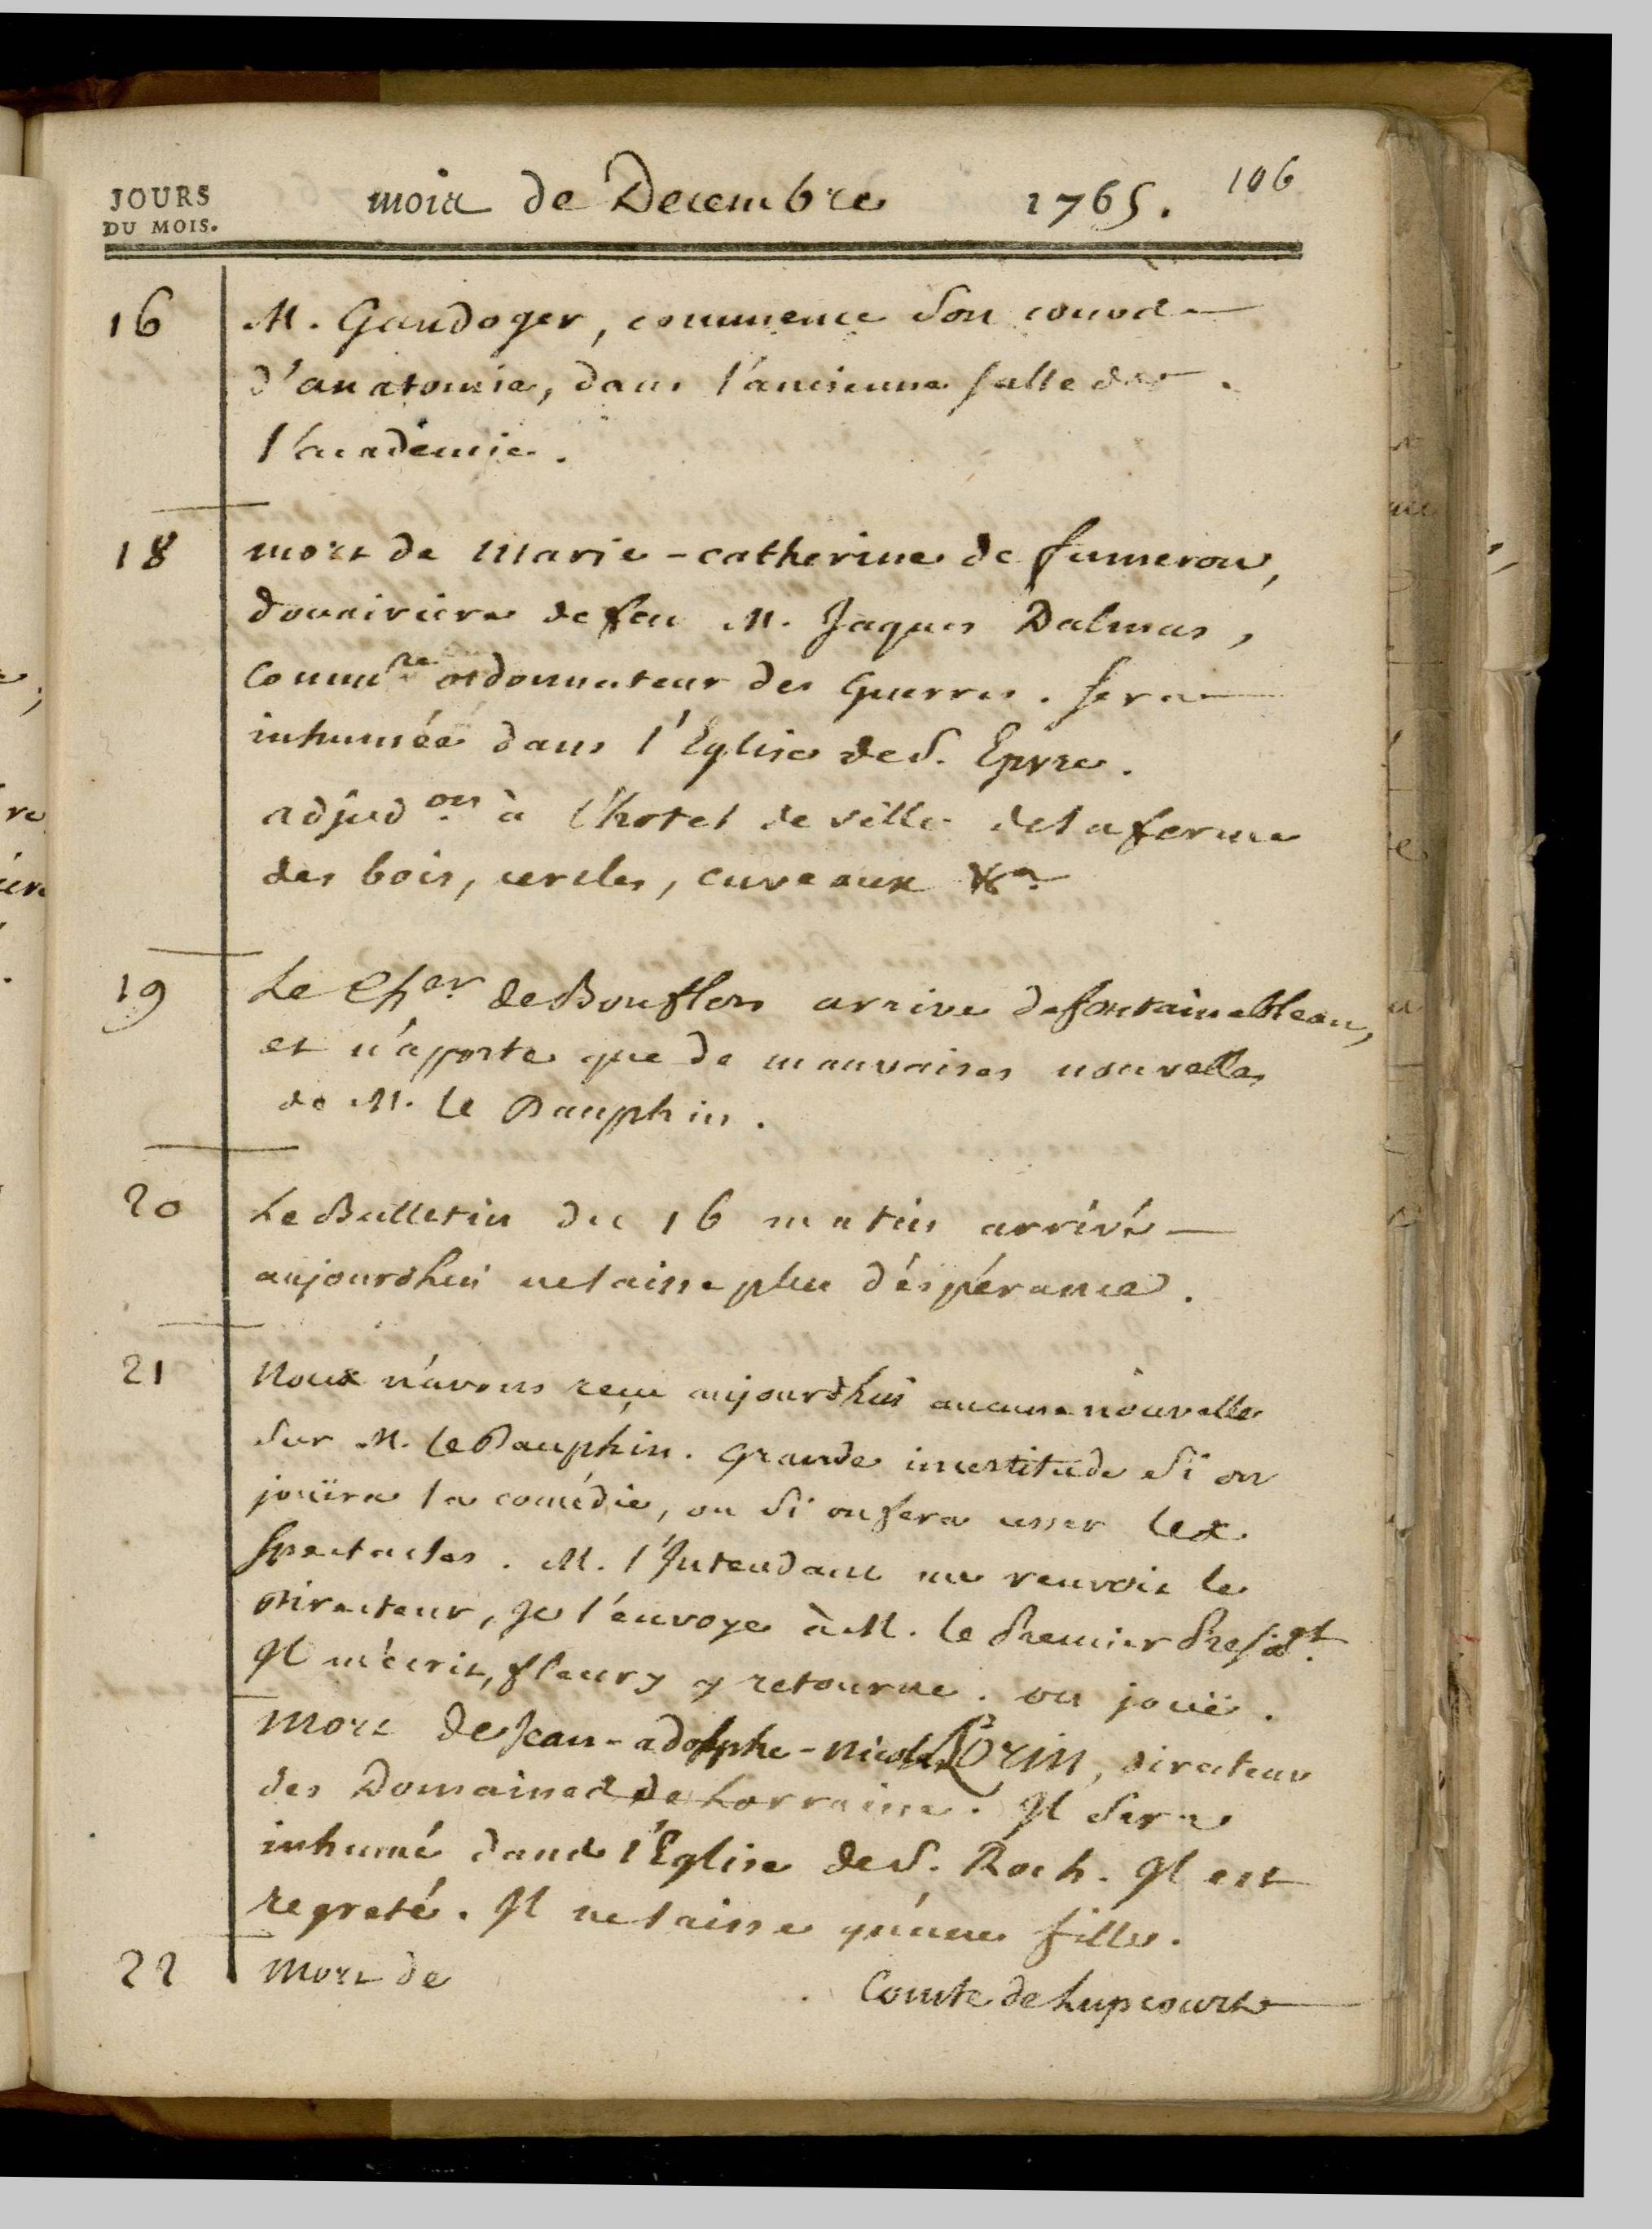 JOURS
DU MOIS.
mois de Decembre 1765. 106
16 M. Gandoger, commence son cours
d'anatomie, dans l'ancienne salle de
l'académie.
18 mort de Marie-catherine de fumeron,
douairiere de feu M. Jaques Dalmas,
Commre ordonnateur des Guerres. sera
inhumée dans l'Eglise de S. Epvre.
adjudon à l'hotel de ville de la ferme
des bois, cercles, cuveaux &a
19 Le Cher de Bouflers arrive de fontainebleau,
et n'apporte que de mauvaises nouvelles
de M. le Dauphin.
20 Le Bulletin du 16 matin arrivé
aujourdhui ne laisse plus d'éspérance.
21 Nous n'avons reçu aujourdhui aucune nouvelle
sur M. le Dauphin. grande incertitude si on
jouïra la comédie, ou si on fera cesser les
spectacles. M. l'Intendant me renvoie le
Directeur, je l'envoye à M. le Premier Presidt.
Il m'écrit, fleury y retourne. on jouë.
Mort de Jean-adolphe-Nicolas Lorin, directeur
des Domaines de Lorraine. Il sera
inhumé dans l'Eglise de S. Roch. Il est
regreté. Il ne laisse qu'une fille.
22 Mort de . Comte de Lupcourt